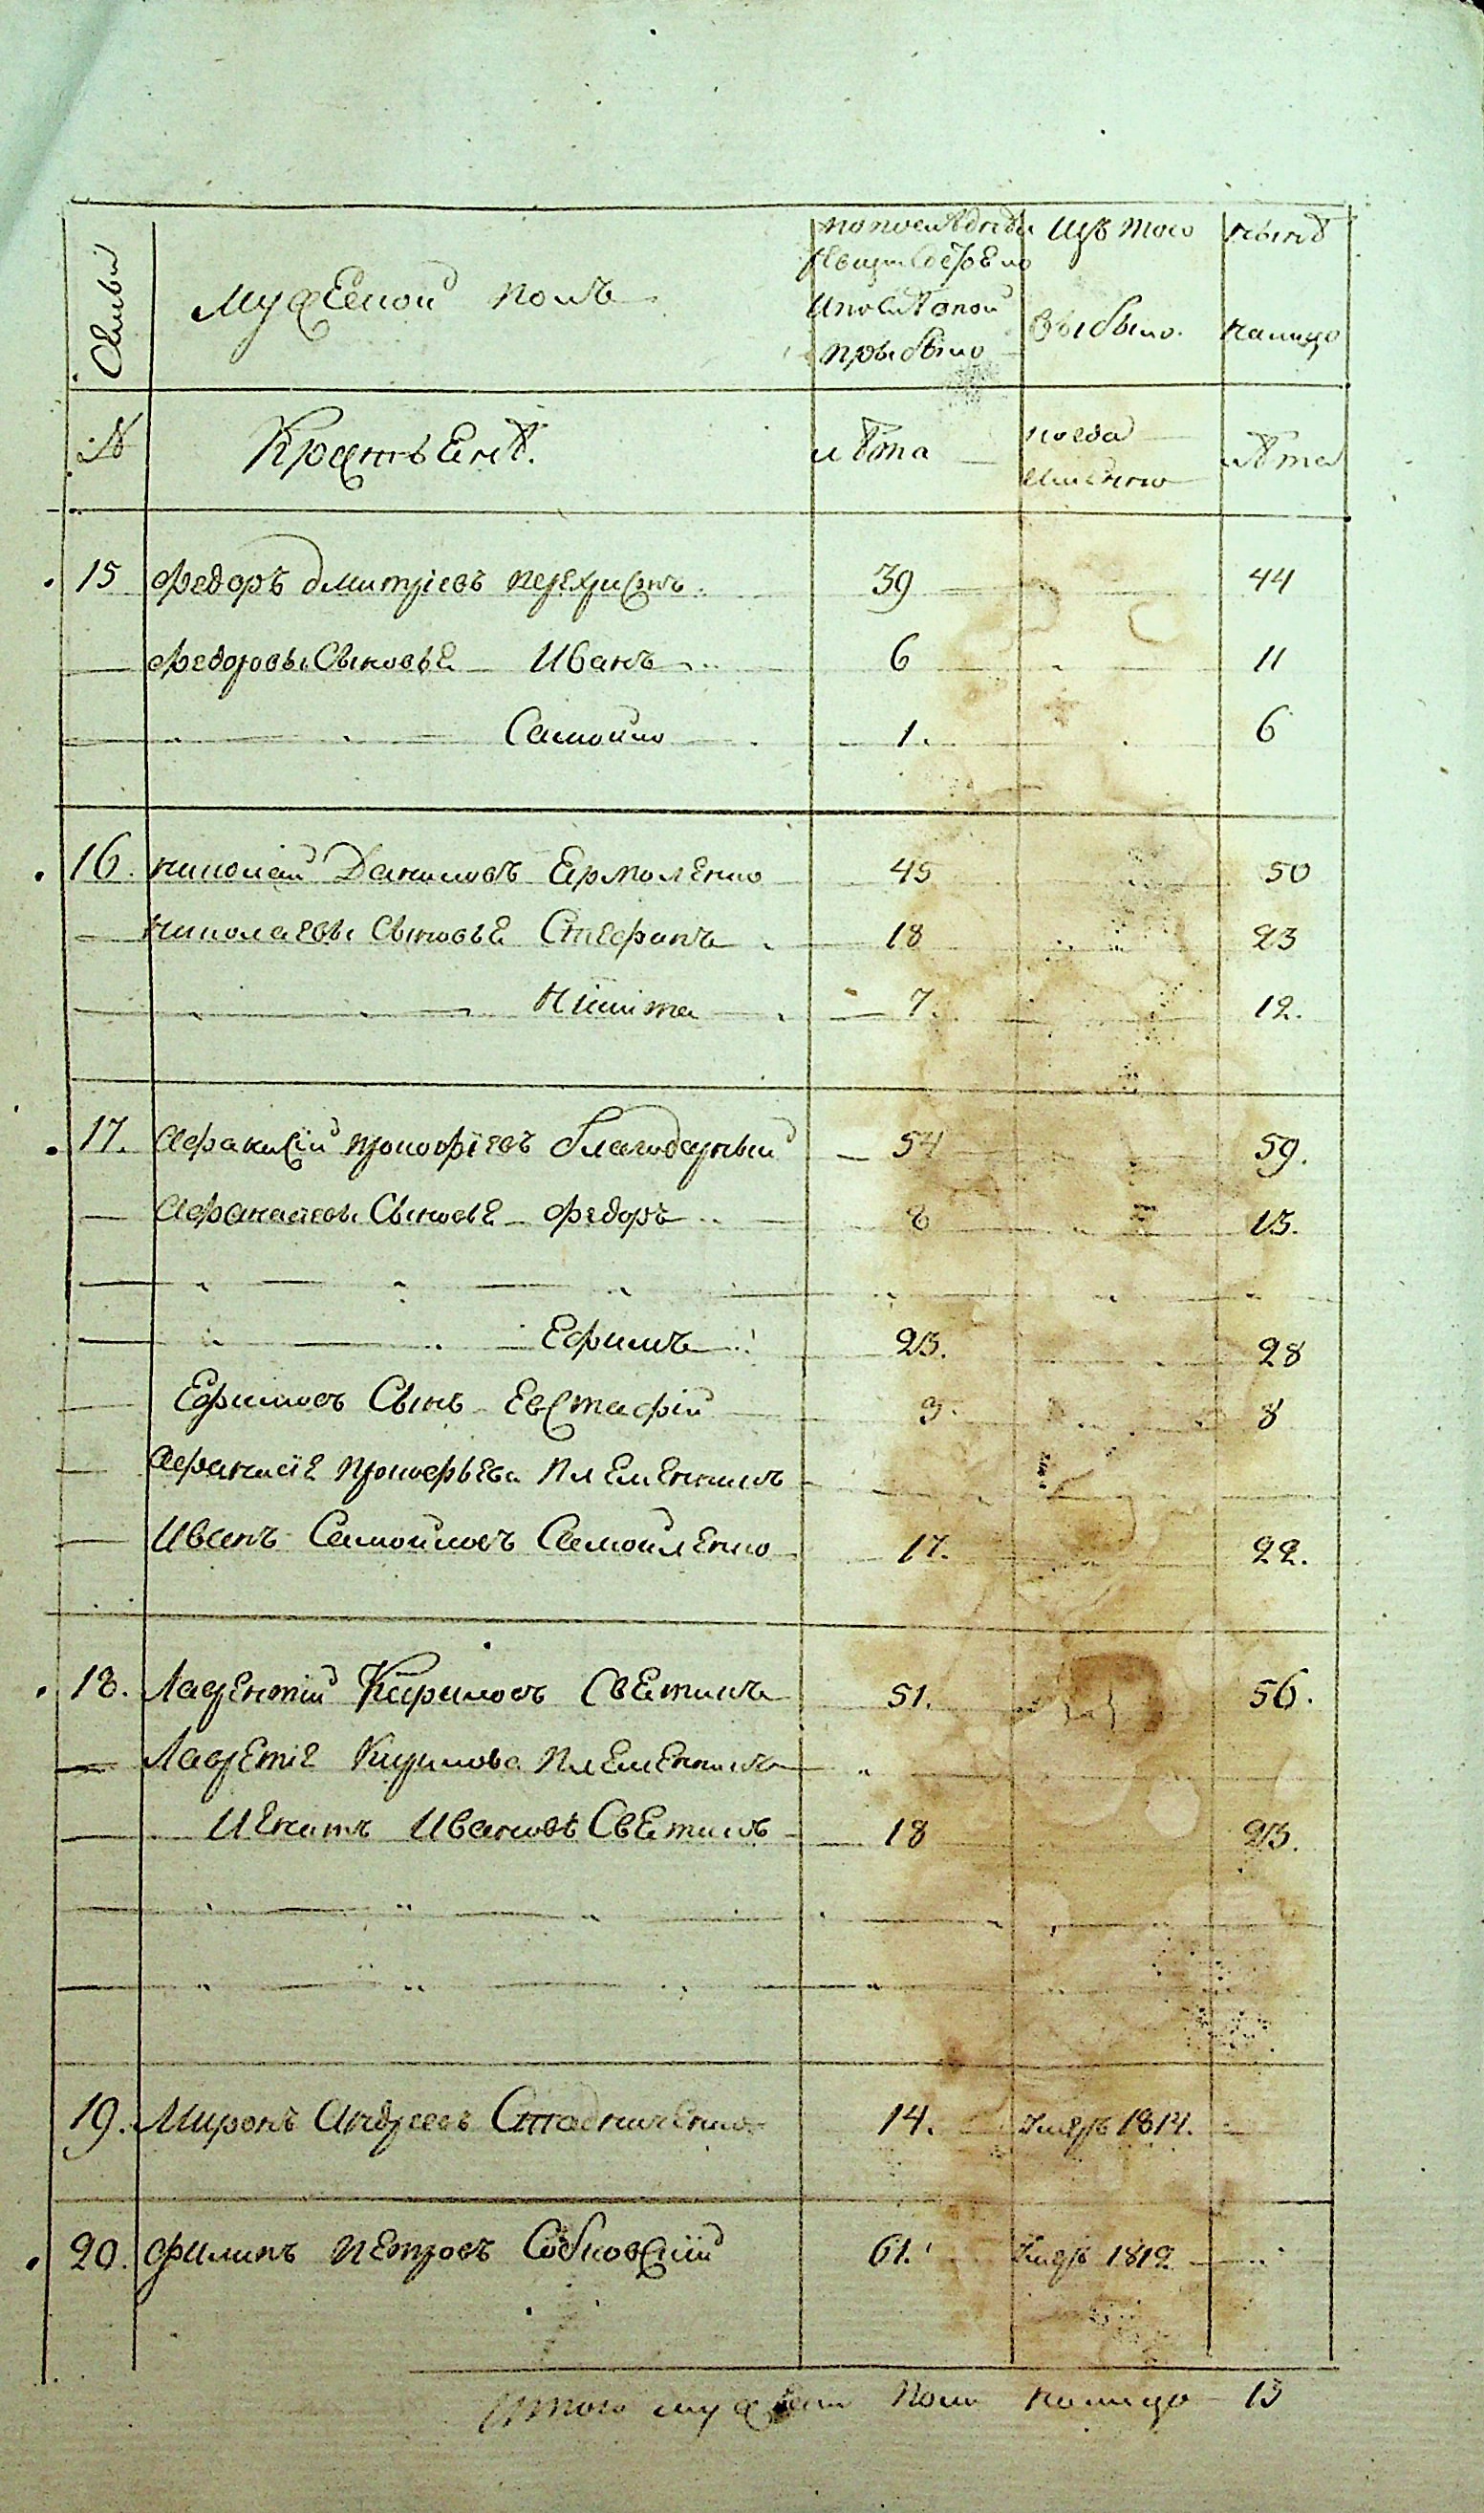 Семьи
Мужеской полъ
попоследней
ревизии состояло
и после оной
прибыло
Изъ того
выбыло.
ныне
налицо
№
Крестьяне.
лѣта
когда
имянно
лѣта
15 Федоръ Дмитріевъ Перехристъ 39 44
Федоровы Сыновья Иванъ 6 11
Самойло 1. 6
16. Николай Даниловъ Ермоленко 45 50
Николаевы Сыновья Стефанъ 18 23
Никита 7. 12.
17. Афанасій Прокофіевъ Благодарный 54 59.
Афанасіевы Сыновья Федоръ 8 13.
Ефимъ 23. 28
Ефимовъ Сынъ Евстафій 3. 8
Афанасіе Прокофьева Племенникъ
Иванъ Самойловъ Самойленко 17. 22.
18. Лаврентій Кириловъ Светикъ 51. 56.
Лаврентіе Кирилова Племенникъ
Игнатъ Ивановъ Светикъ 18 23.
19. Миронъ Андреевъ Стадниченко 14. Умеръ 1814.
20. Филипъ Петровъ Собковскій 61. Умеръ 1812
Итого мужеска Пола налицо 13